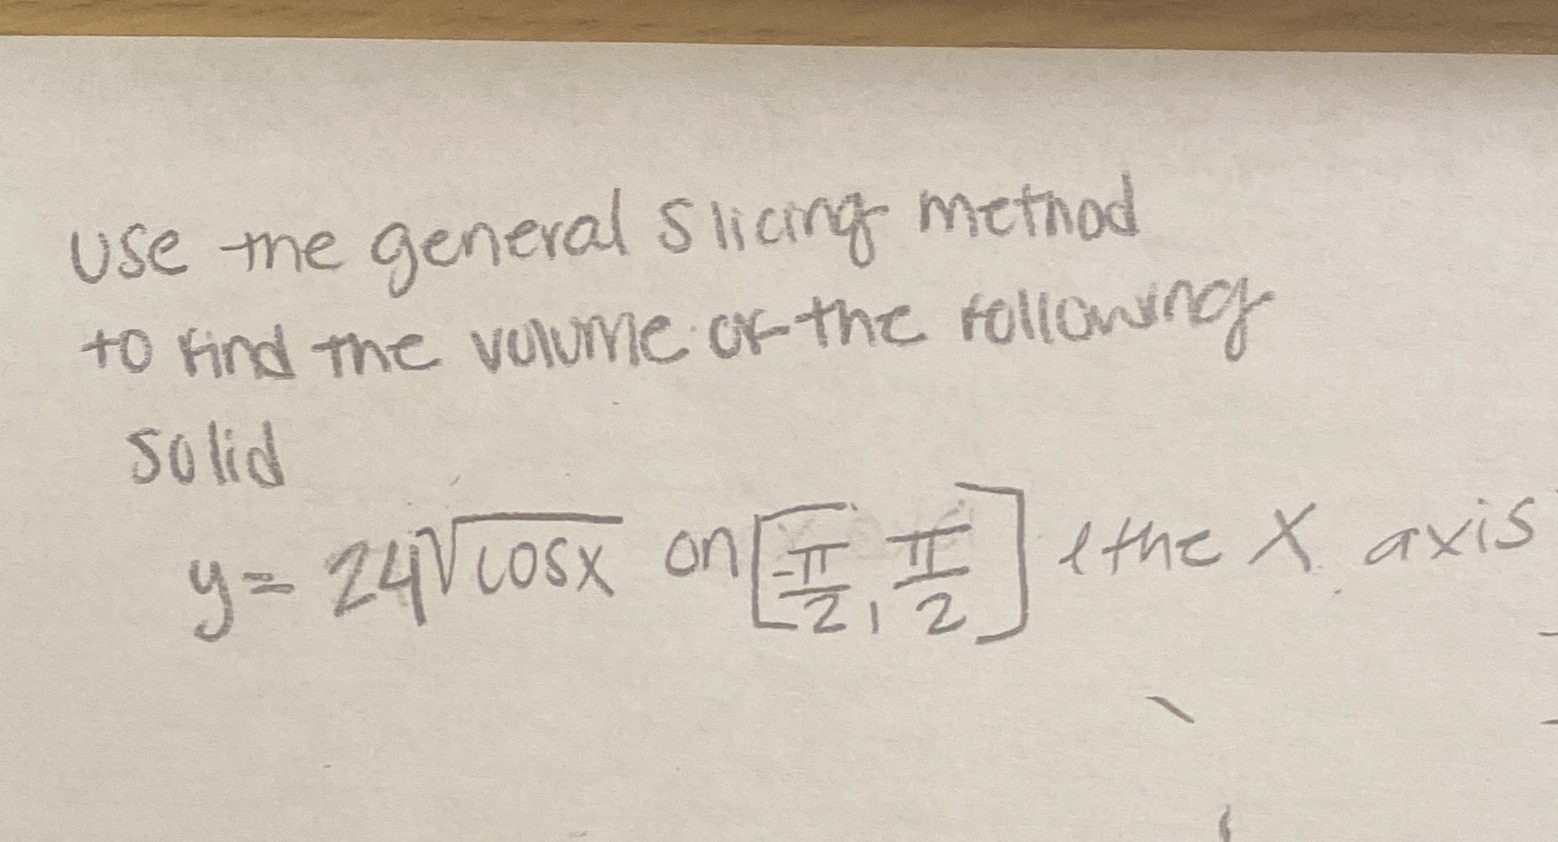 use the general slicing method
to find the volume of the following
solid
y = 24√cosx on [-π/2, π/2] & the x axis